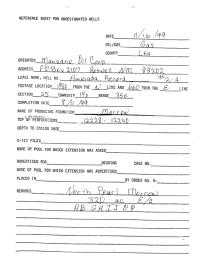 REFERENCE SHEET FOR UNDESIGNATED WELLS
DATE 11/16/99
OIL/GAS Gas
COUNTY Lea
OPERATOR Manzano Oil Corp
ADDRESS P.O. Box 2107 Roswell NM 88202
LEASE NAME, WELL NO.
FOOTAGE LOCATION, FROM THE N LINE AND FROM THE E LINE
SECTION 25 TOWNSHIP 19s RANGE 35E
COMPLETION DATE
NAME OF PRODUCING FORMATION Morrow
TOP OF PERFORATIONS 12228 - 12240
DEPTH TO CASING SHOE
C-123 FILED
NAME OF POOL FOR WHICH EXTENSION WAS ASKED
ADVERTISED FOR HEARING CASE NO.
NAME OF POOL FOR WHICH EXTENSION WAS ADVERTISED
PLACED IN BY ORDER NO. R-
REMARKS North Pearl Morrow
320 ac E/2
A B G H I J O P